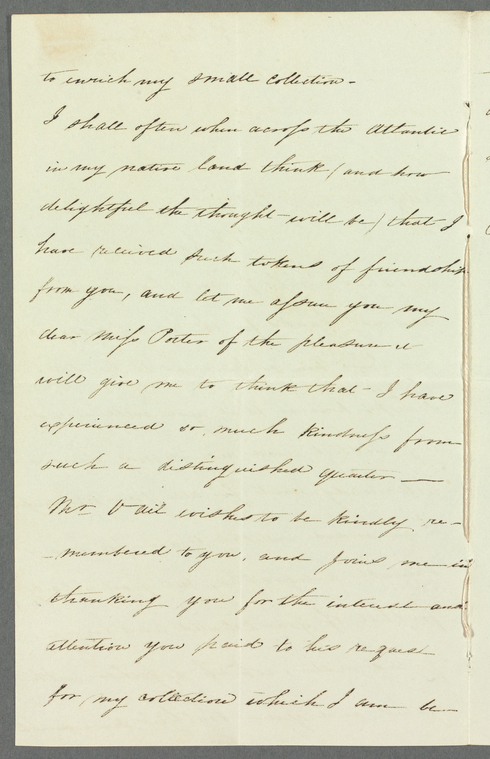 to enrich my small collection -
I shall often when across the Atlantic
in my native land think (and how
delightful the thought will be) that I
have received such tokens of friendship
from you, and let me assure you my
dear Miss Porter of the pleasure it
will give me to think that I have
experienced so much kindness from
such a distinguished quarter —
Mr Vail wishes to be kindly re-
-membered to you, and joins me in
thanking you for the interest and
attention you paid to his request
for my collection which I am be-